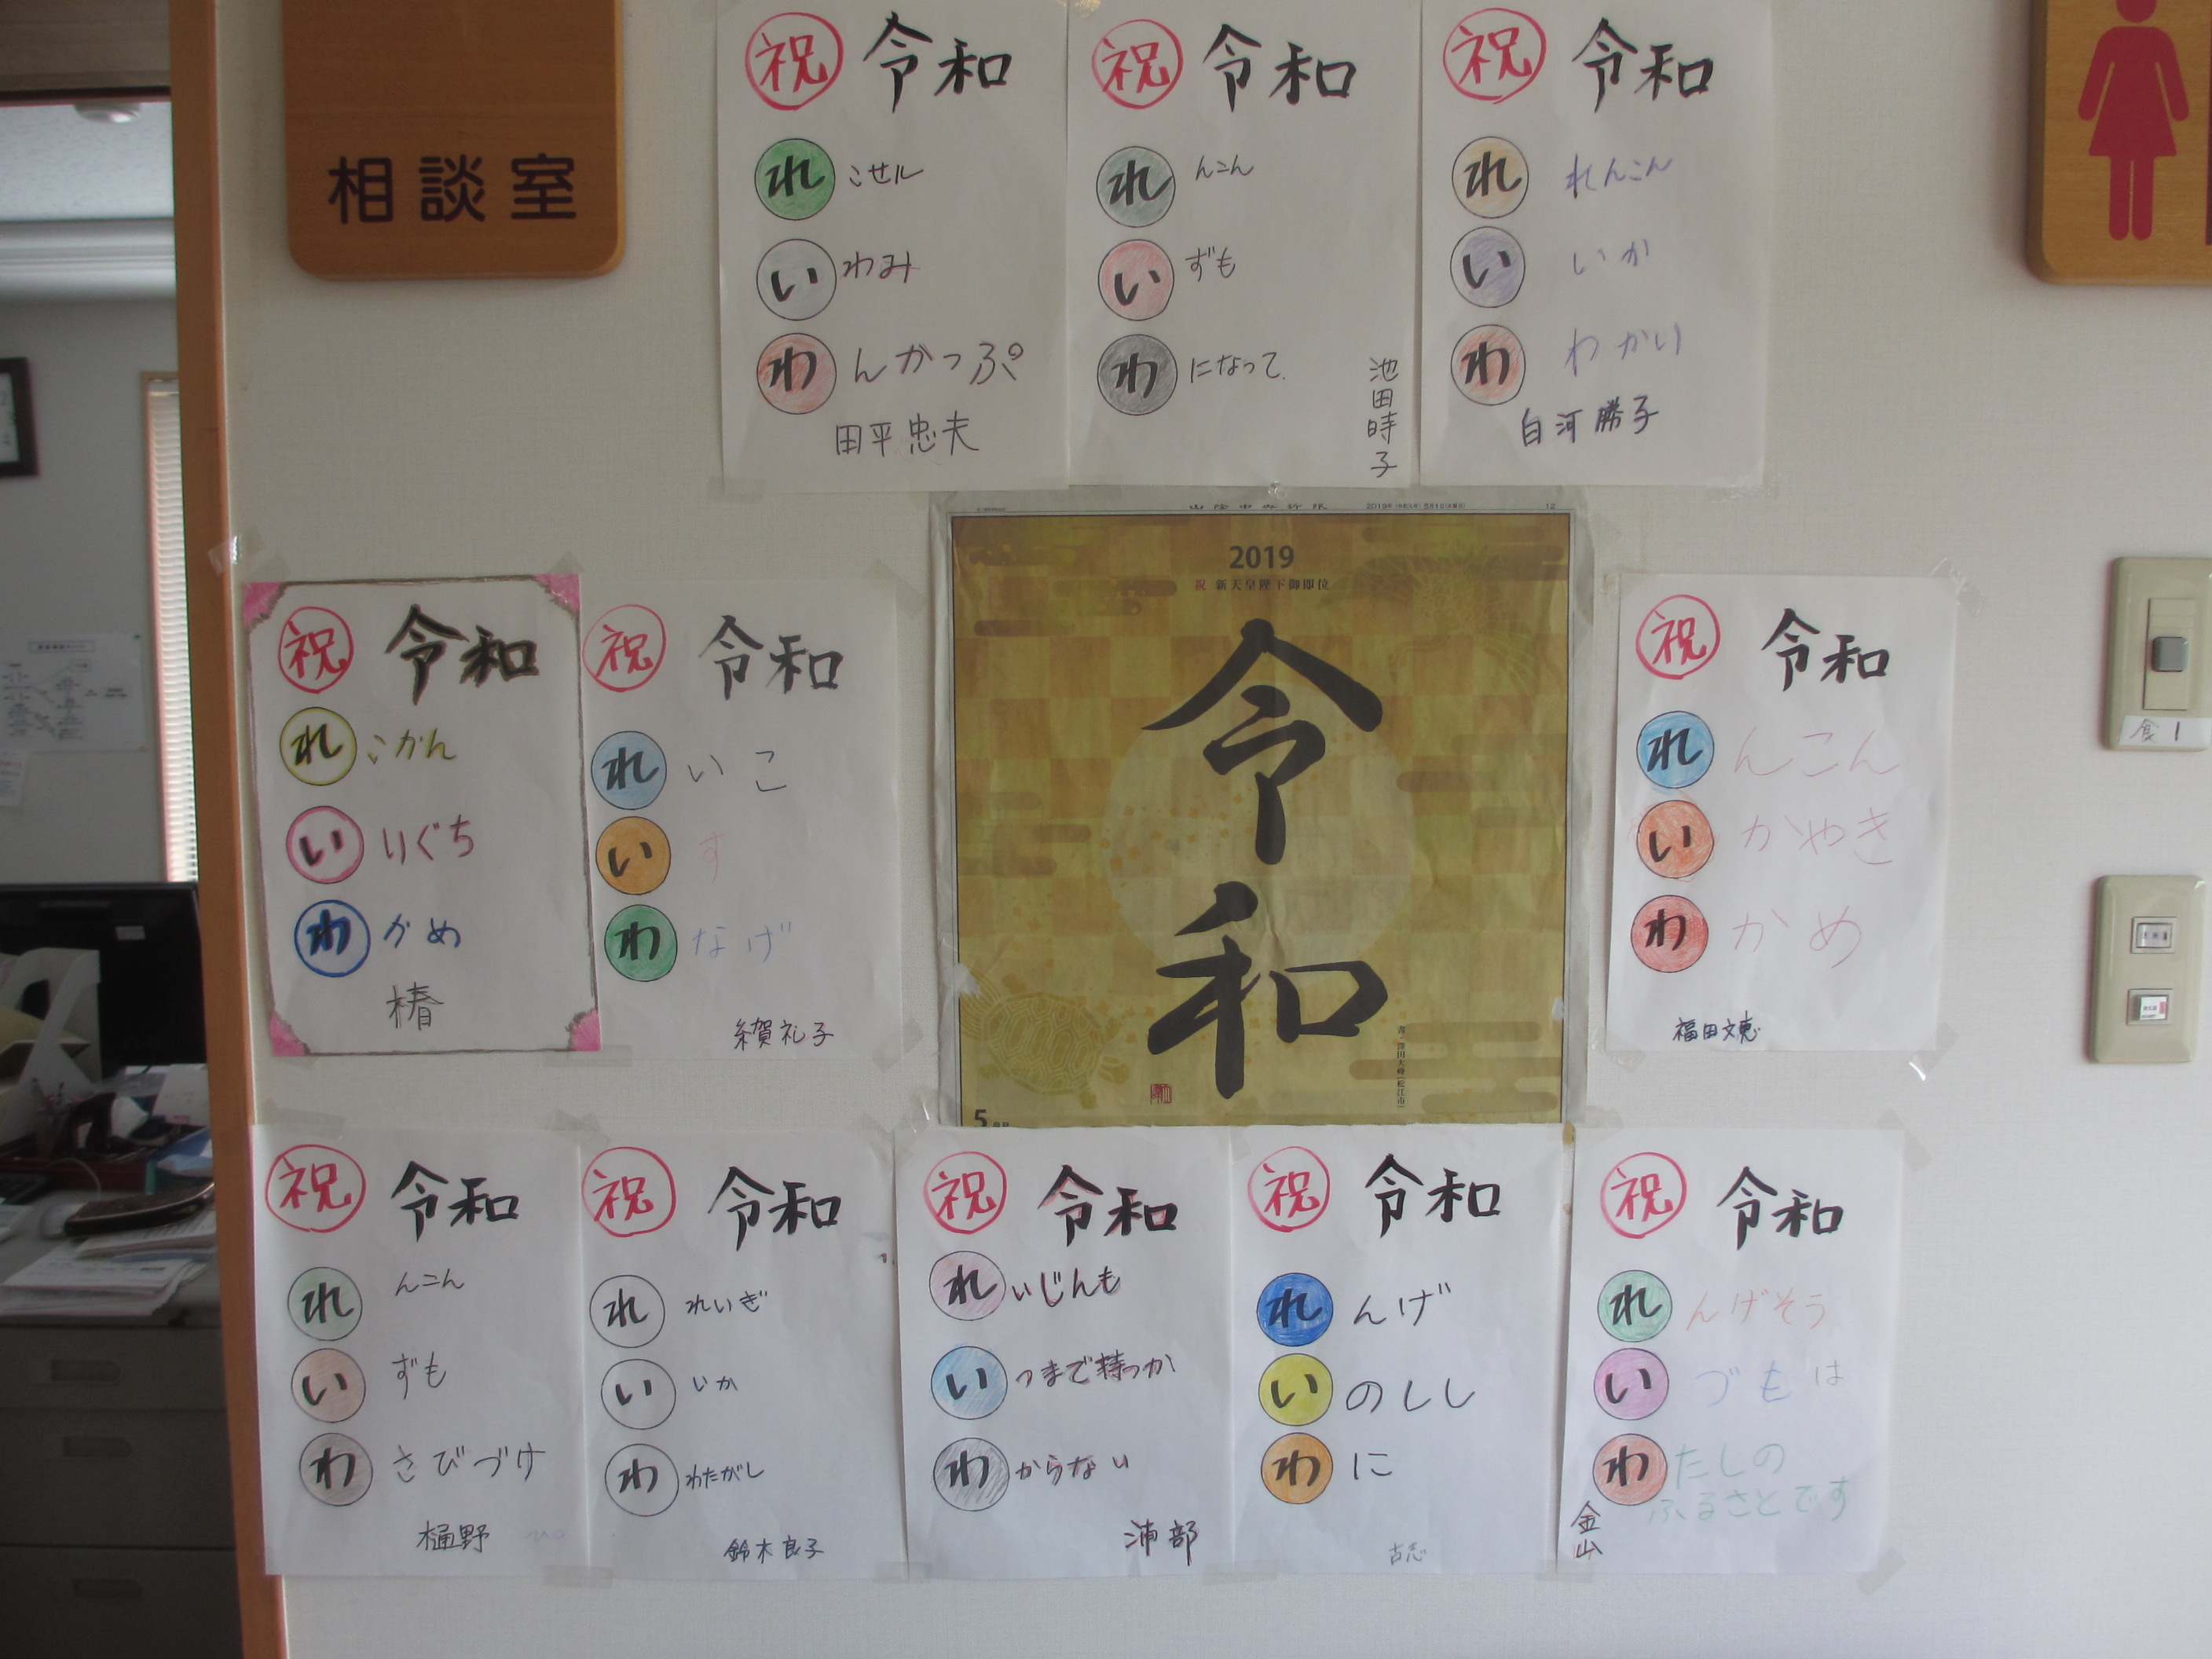 相談室
祝 令和
れ こせル
い わみ
わ んかっぷ
田平忠夫
祝 令和
れ んこん
い ずも
わ になって
池田時子
祝 令和
れ れんこん
い いか
わ わかい
白河勝子
祝 令和
れ こかん
い りぐち
わ かめ
椿
祝 令和
れ いこ
い す
わ なげ
賀礼子
山陰中央新報 2019年 12
2019
祝 新天皇陛下御即位
令和
5
祝 令和
れ んこん
い かやき
わ かめ
福田文恵
食1
祝 令和
れ んこん
い ずも
わ さびづけ
樋野
祝 令和
れ れいぎ
い いか
わ わたがし
鈴木良子
祝 令和
れ いじんも
い つまで持つか
わ からない
浦部
祝 令和
れ んげ
い のしし
わ に
古志
祝 令和
れ んげそう
い づもは
わ たしの
ふるさとです
金山